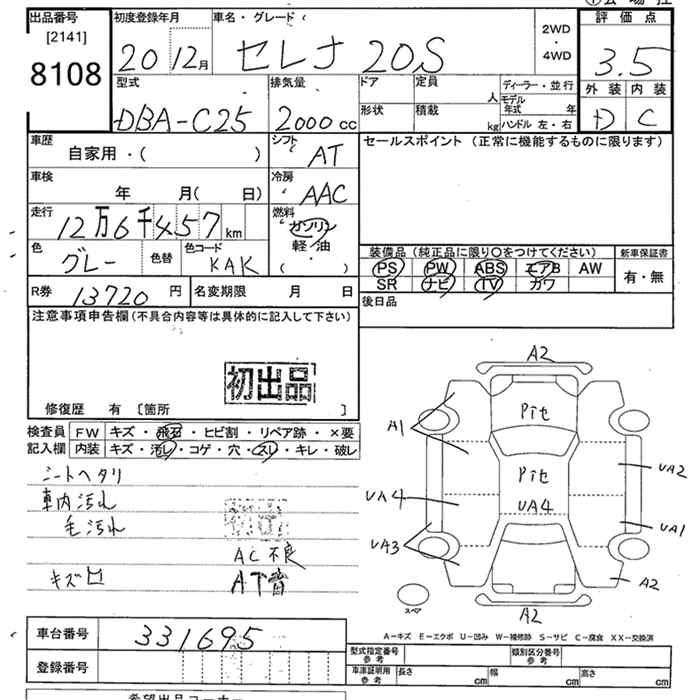 出品番号 初度登録年月 車名・グレード 評価点
[2141] 20 12月 セレナ 20S 2WD ・ 4WD 3.5
8108 型式 排気量 ドア 定員 人 ディーラー・並行 外装 内装
DBA-C25 2000cc 形状 積載 kg モデル年式 年 D C
ハンドル 左・右
車歴 シフト セールスポイント (正常に機能するものに限ります)
自家用・( ) AT
車検 冷房
年 月( 日) AAC
走行 燃料
12万6千457km ガソリン
軽・油
色 色替 色コード ( ・ )
グレー KAK
装備品 (純正品に限り〇をつけてください) 新車保証書
PS PW ABS エアB AW 有・無
SR ナビ TV カワ
R券 13720円 名変期限 月 日 後日品
注意事項申告欄(不具合内容等は具体的に記入して下さい)
初出品
修復歴 有 [箇所 ]
検査員 FW キズ・飛石・ヒビ割・リペア跡・×要
記入欄 内装 キズ・汚れ・コゲ・穴・スレ・キレ・破レ
シートヘタリ
車内汚れ
毛汚れ
AC不良
キズ AT音
A2
A1 Pit
Pit UA2
UA4 UA4
UA1
UA3
A2
スペア A2
A－キズ E－エクボ U－凹み W－補修跡 S－サビ C－腐食 XX－交換済
車台番号 331695
登録番号
型式指定番号 参考 類別区分番号 参考
車庫証明用 参考 長さ cm 幅 cm 高さ cm
希望出品コーナー